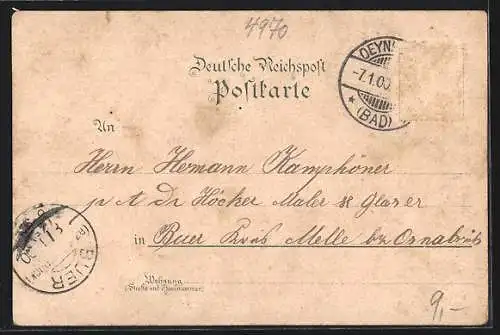 4970
Deutsche Reichspost
Postkarte
OEYN
-7.1.00
* (BAD)
An
Herrn Hermann Kamphöner
p A Dr Höcker Maler & Glaser
in Buer Kreis Melle bz Osnabrück
BUER
Wohnung
(Straße und Hausnummer)
9,-